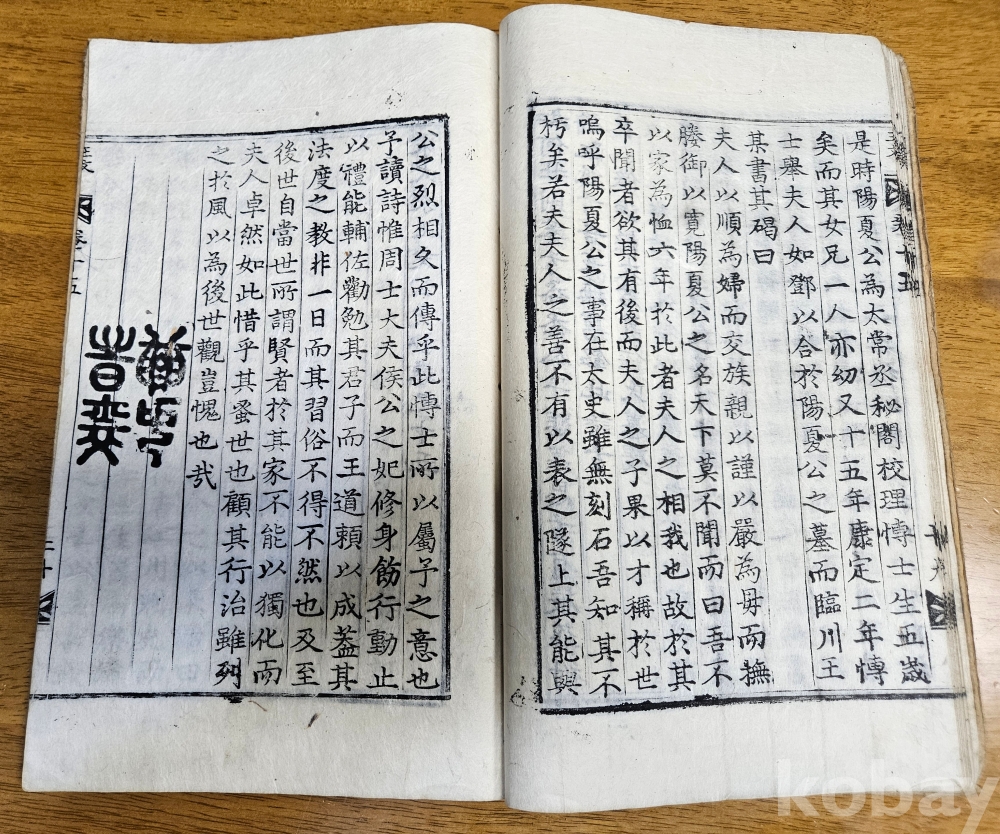 是時陽夏公為太常丞秘閣校理愽士生五歲
矣而其女兄一人亦幼又十五年康定二年愽
士舉夫人如鄧以合於陽夏公之墓而臨川王
其書其碣曰
夫人以順為婦而交族親以謹以嚴為母而撫
媵御以寬陽夏公之名天下莫不聞而曰吾不
以家為恤六年於此者夫人之相我也故於其
卒聞者欲其有後而夫人之子果以才稱於世
嗚呼陽夏公之事在太史雖無刻石吾知其不
朽矣若夫夫人之善不有以表之隧上其能與
公之烈相久而傳乎此愽士所以屬予之意也
予讀詩惟周士大夫侯公之妃修身飭行動止
以禮能輔佐勸勉其君子而王道賴以成蓋其
法度之教非一日而其習俗不得不然也及至
後世自當世所謂賢者於其家不能以獨化而
夫人卓然如此惜乎其蚤世也顧其行治雖列
之於風以為後世觀豈愧也哉
卷十五
二十
卷十五
十九
kobay